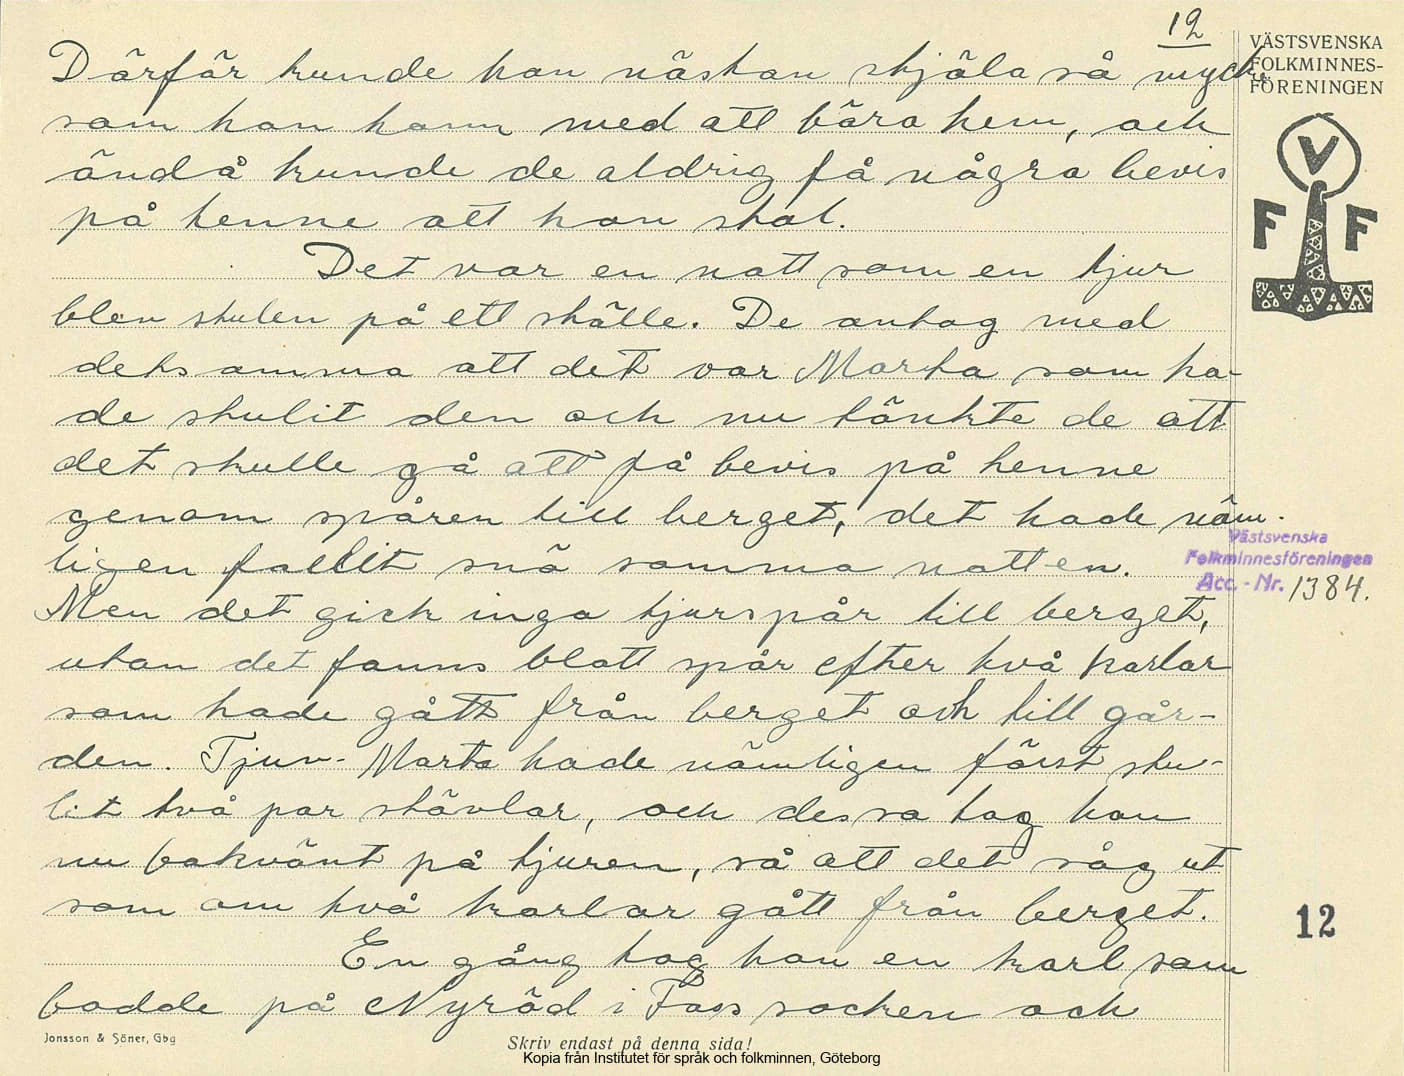 12
VÄSTSVENSKA
FOLKMINNES-
FÖRENINGEN
V
F F
Därför kunde hon nästan stjäla så mycke
som hon hann med att bära hem, och
ändå kunde de aldrig få några bevis
på henne att hon stal.
Det var en natt som en tjur
blev stulen på ett ställe. De antog med
detsamma att det var Marta som ha-
de stulit den och nu tänkte de att
det skulle gå att få bevis på henne
genom spåren till berget, det hade näm-
ligen fallit snö samma natten.
Västsvenska
Folkminnesföreningen
Acc. - Nr. 1384.
Men det gick inga tjurspår till berget,
utan det fanns blott spår efter två karlar
som hade gått från berget och till går-
den. Tjuv-Marta hade nämligen först stu-
lit två par stövlar, och dessa tog hon
nu bakvänt på tjuren, så att det såg ut
som om två karlar gått från berget.
12
En gång tog hon en karl som
bodde på Nyröd i Foss socken och
Jonsson & Söner, Gbg
Skriv endast på denna sida!
Kopia från Institutet för språk och folkminnen, Göteborg